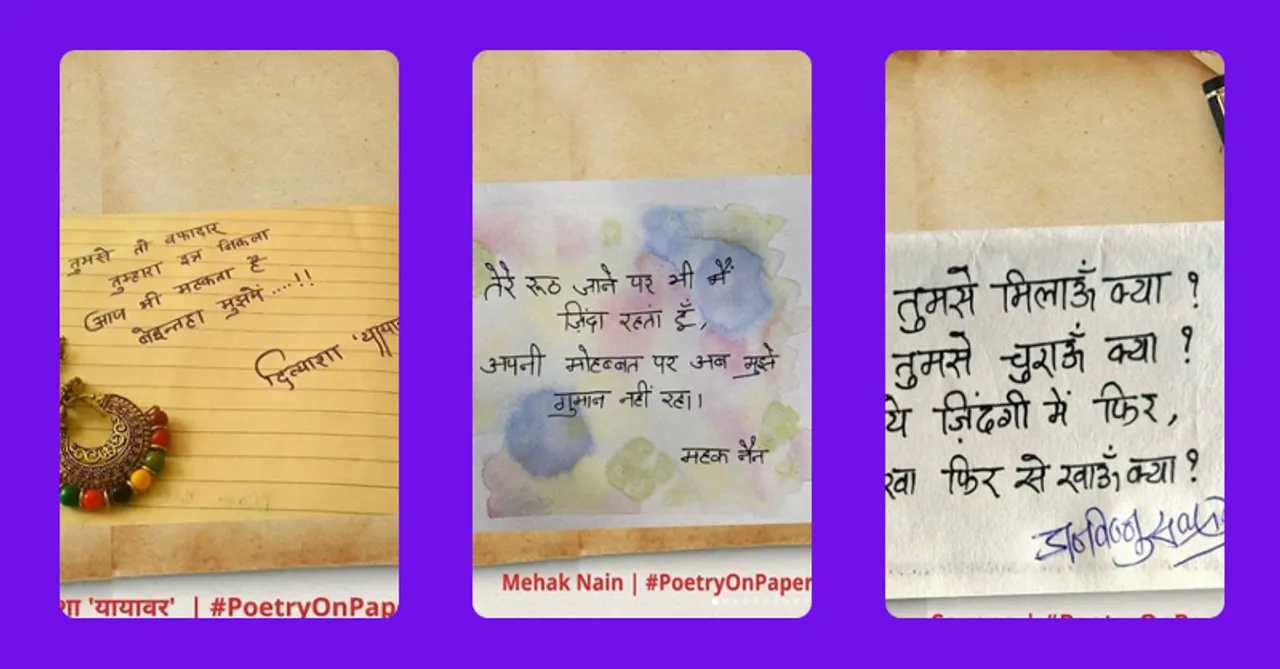 तुमसे तो वफादार
तुम्हारा इत्र निकला
आज भी महकता है
बेइन्तहा मुझमें ....!!
दिव्याशा 'याया
शा 'यायावर' | #PoetryOnPap
तेरे रूठ जाने पर भी मैं
ज़िंदा रहता हूँ,
अपनी मोहब्बत पर अब मुझे
गुमान नहीं रहा।
महक नैन
Mehak Nain | #PoetryOnPaper
तुमसे मिलाऊँ क्या ?
तुमसे चुराऊँ क्या ?
ये ज़िंदगी में फिर,
खा फिर से खाऊँ क्या ?